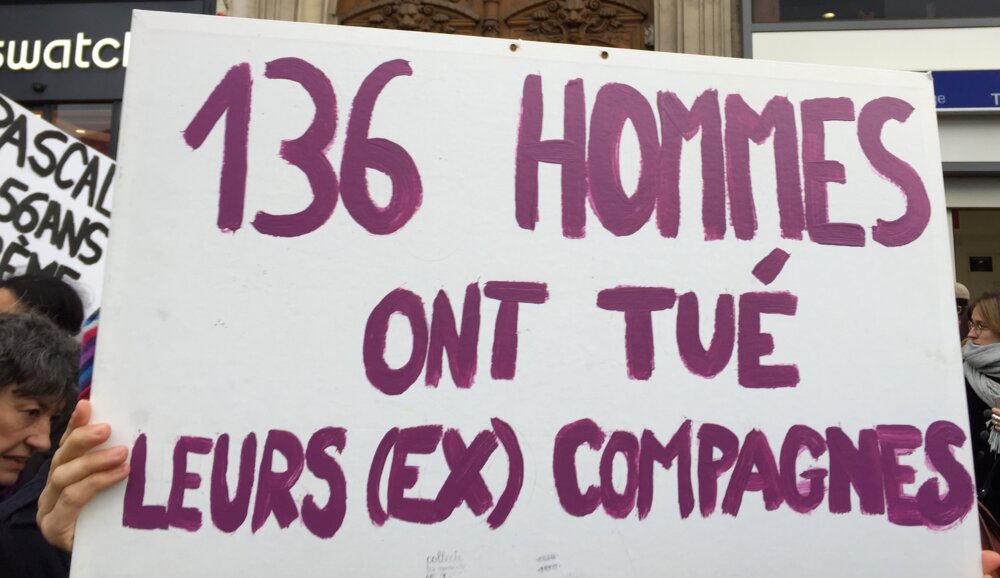 swatch
136 HOMMES
ONT TUÉ
LEURS (EX) COMPAGNES
PASCAL
56ANS